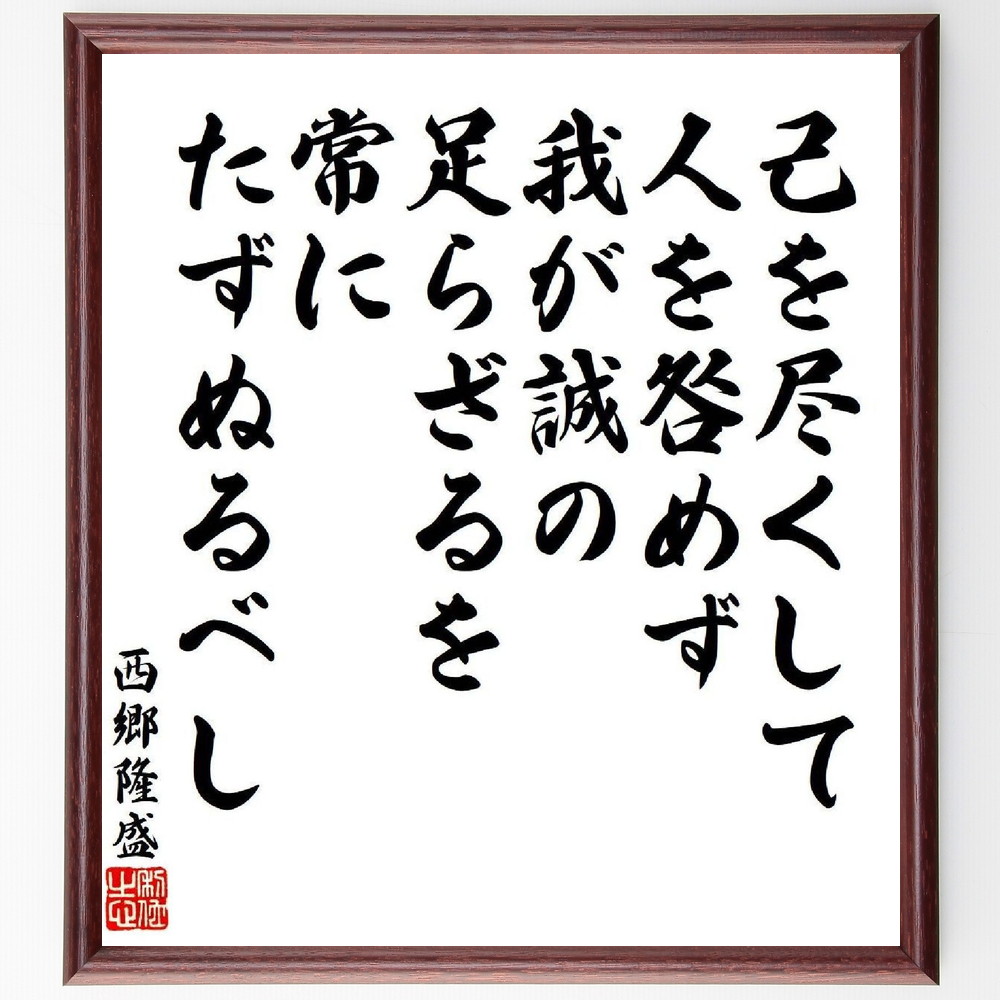 己を尽くして
人を咎めず
我が誠の
足らざるを
常に
たずぬるべし
西郷隆盛